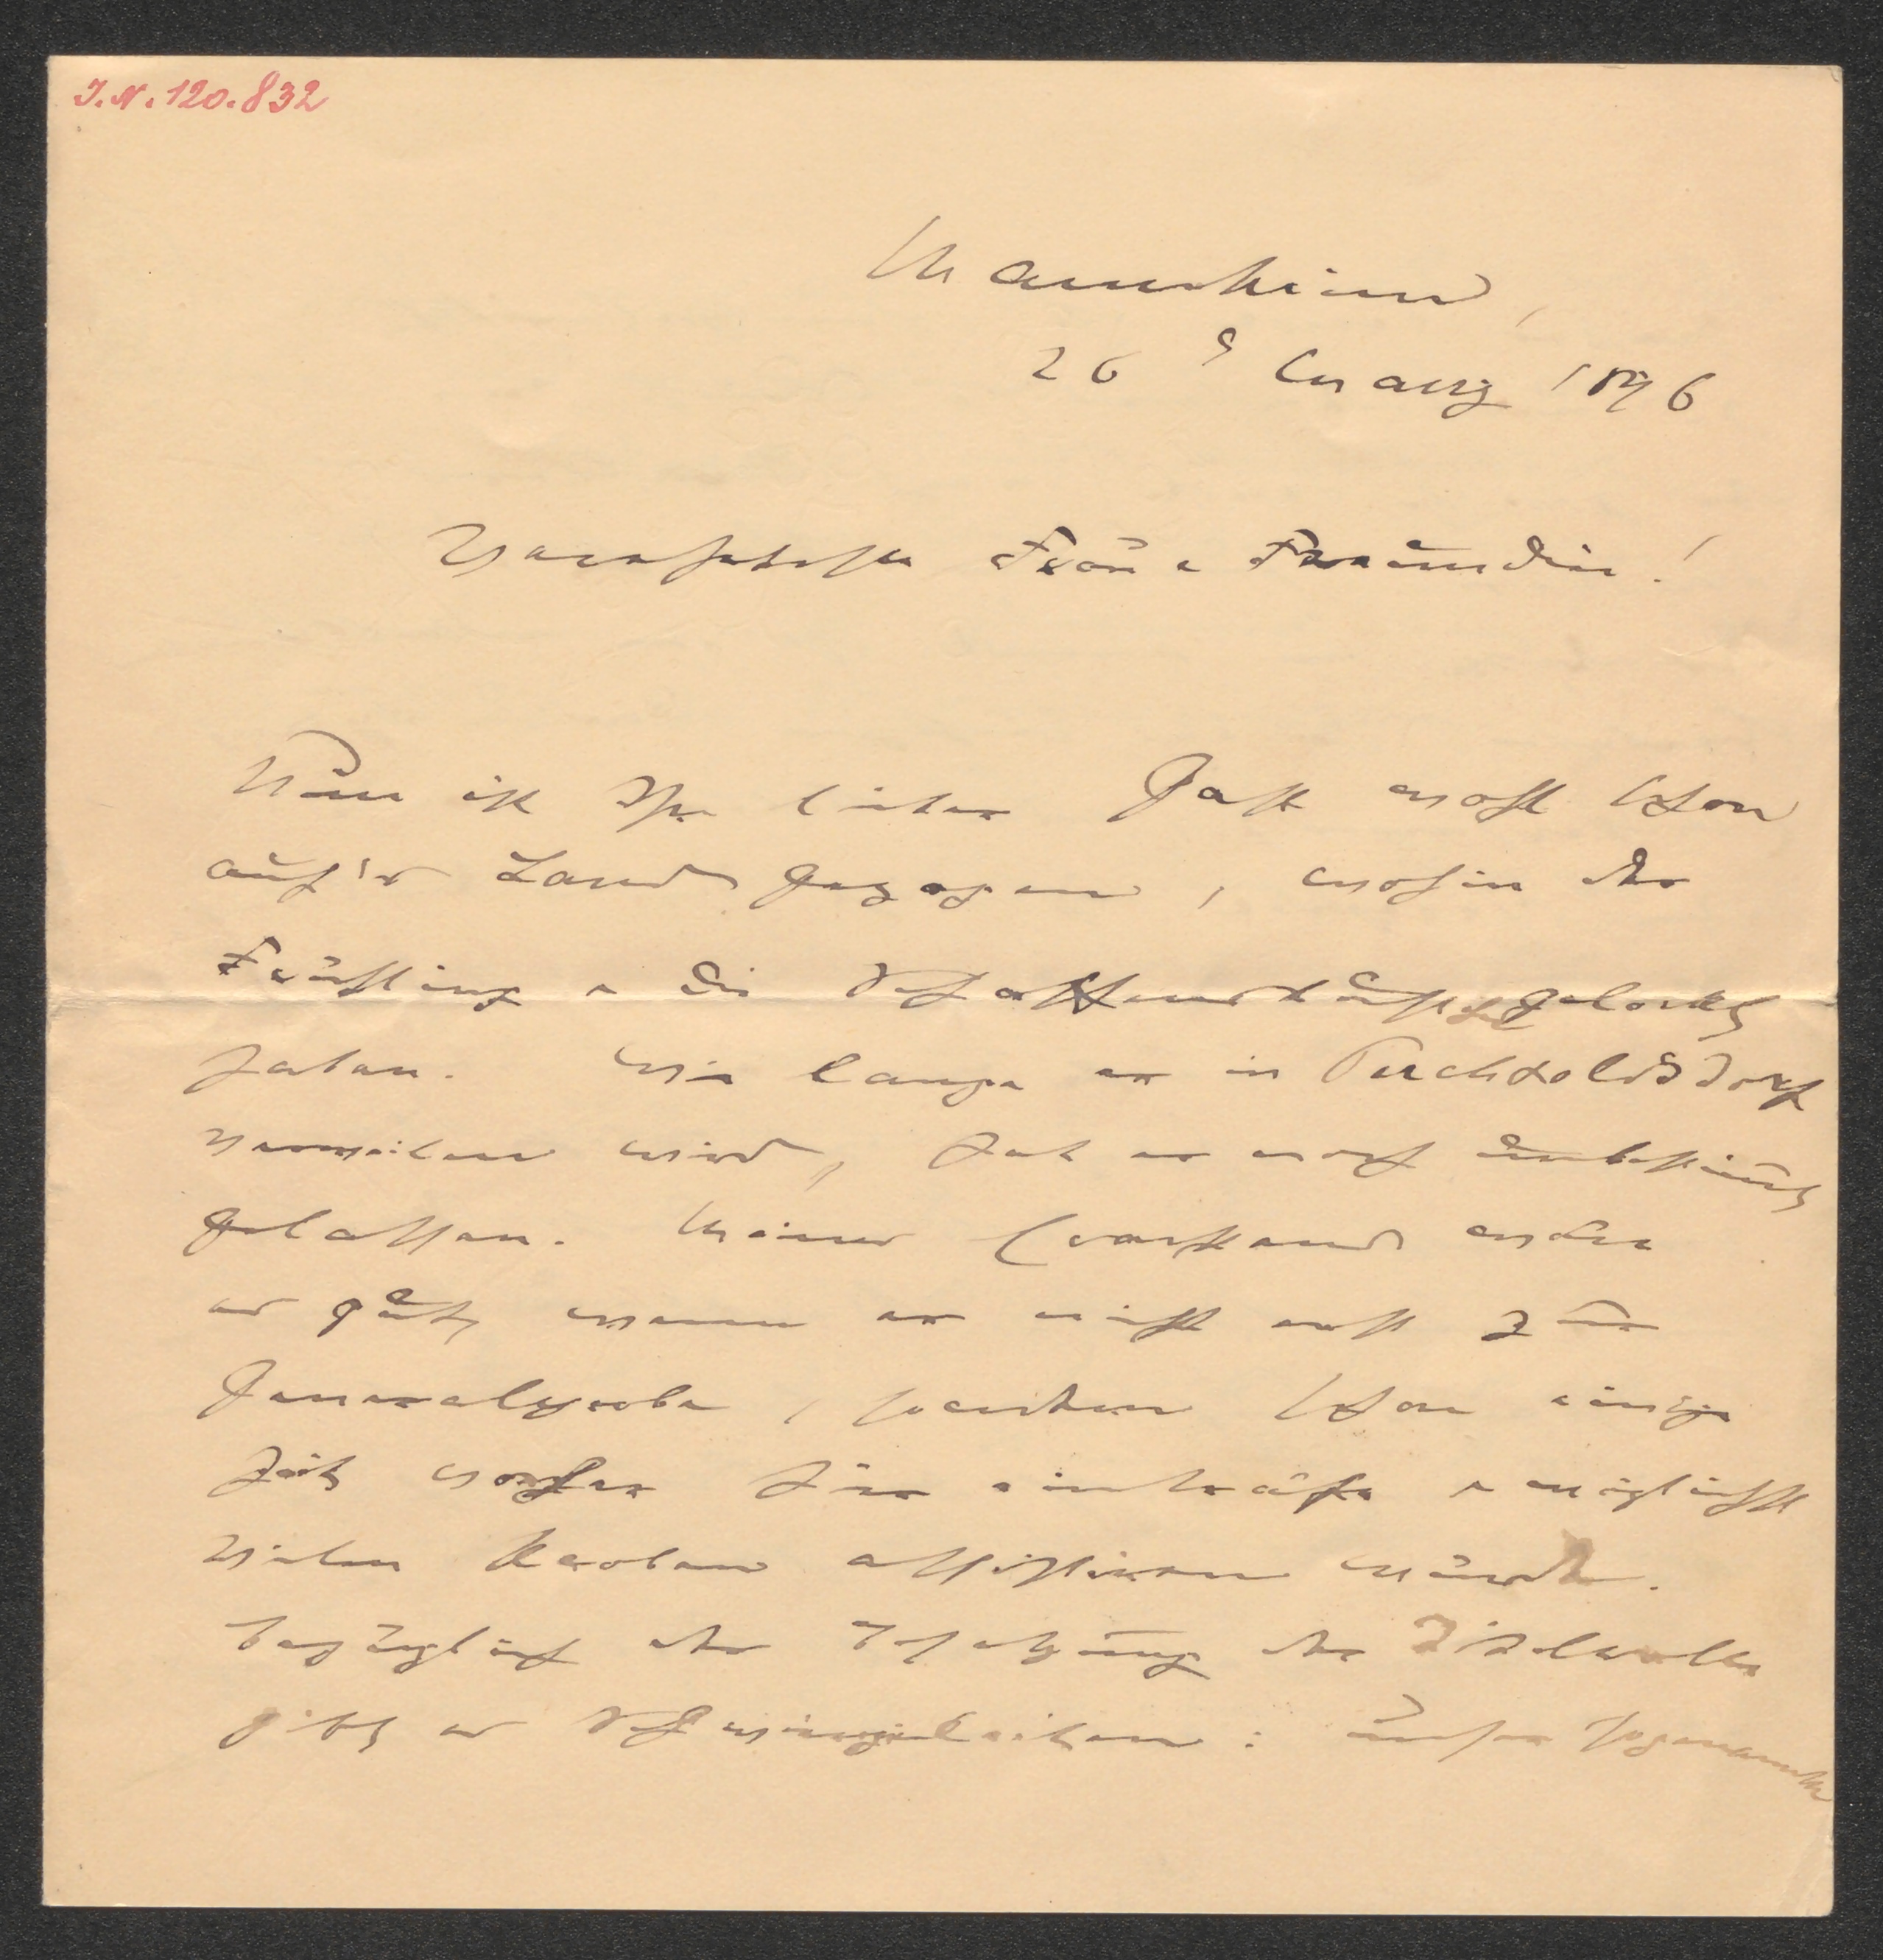 I.N. 120.832
Mannheim,
26 März 1896
Verehrteste Frau u Freundin!
Nun ist Ihr lieber Gast wohl schon
auf's Land gezogen, wohin der
Frühling u die Schaffenslust gelockt
haben. Wie lange er in Perchtoldsdorf
verweilen wird, hat er noch unbestimmt
gelassen. Meines Erachtens wäre
es gut, wenn er nicht erst zur
Generalprobe, sondern schon einige
Zeit vorher hier einträfe u möglichst
vielen Proben assistieren würde.
Bezüglich der Besetzung der Titelrolle
gibt es Schwierigkeiten: unser sogenannter